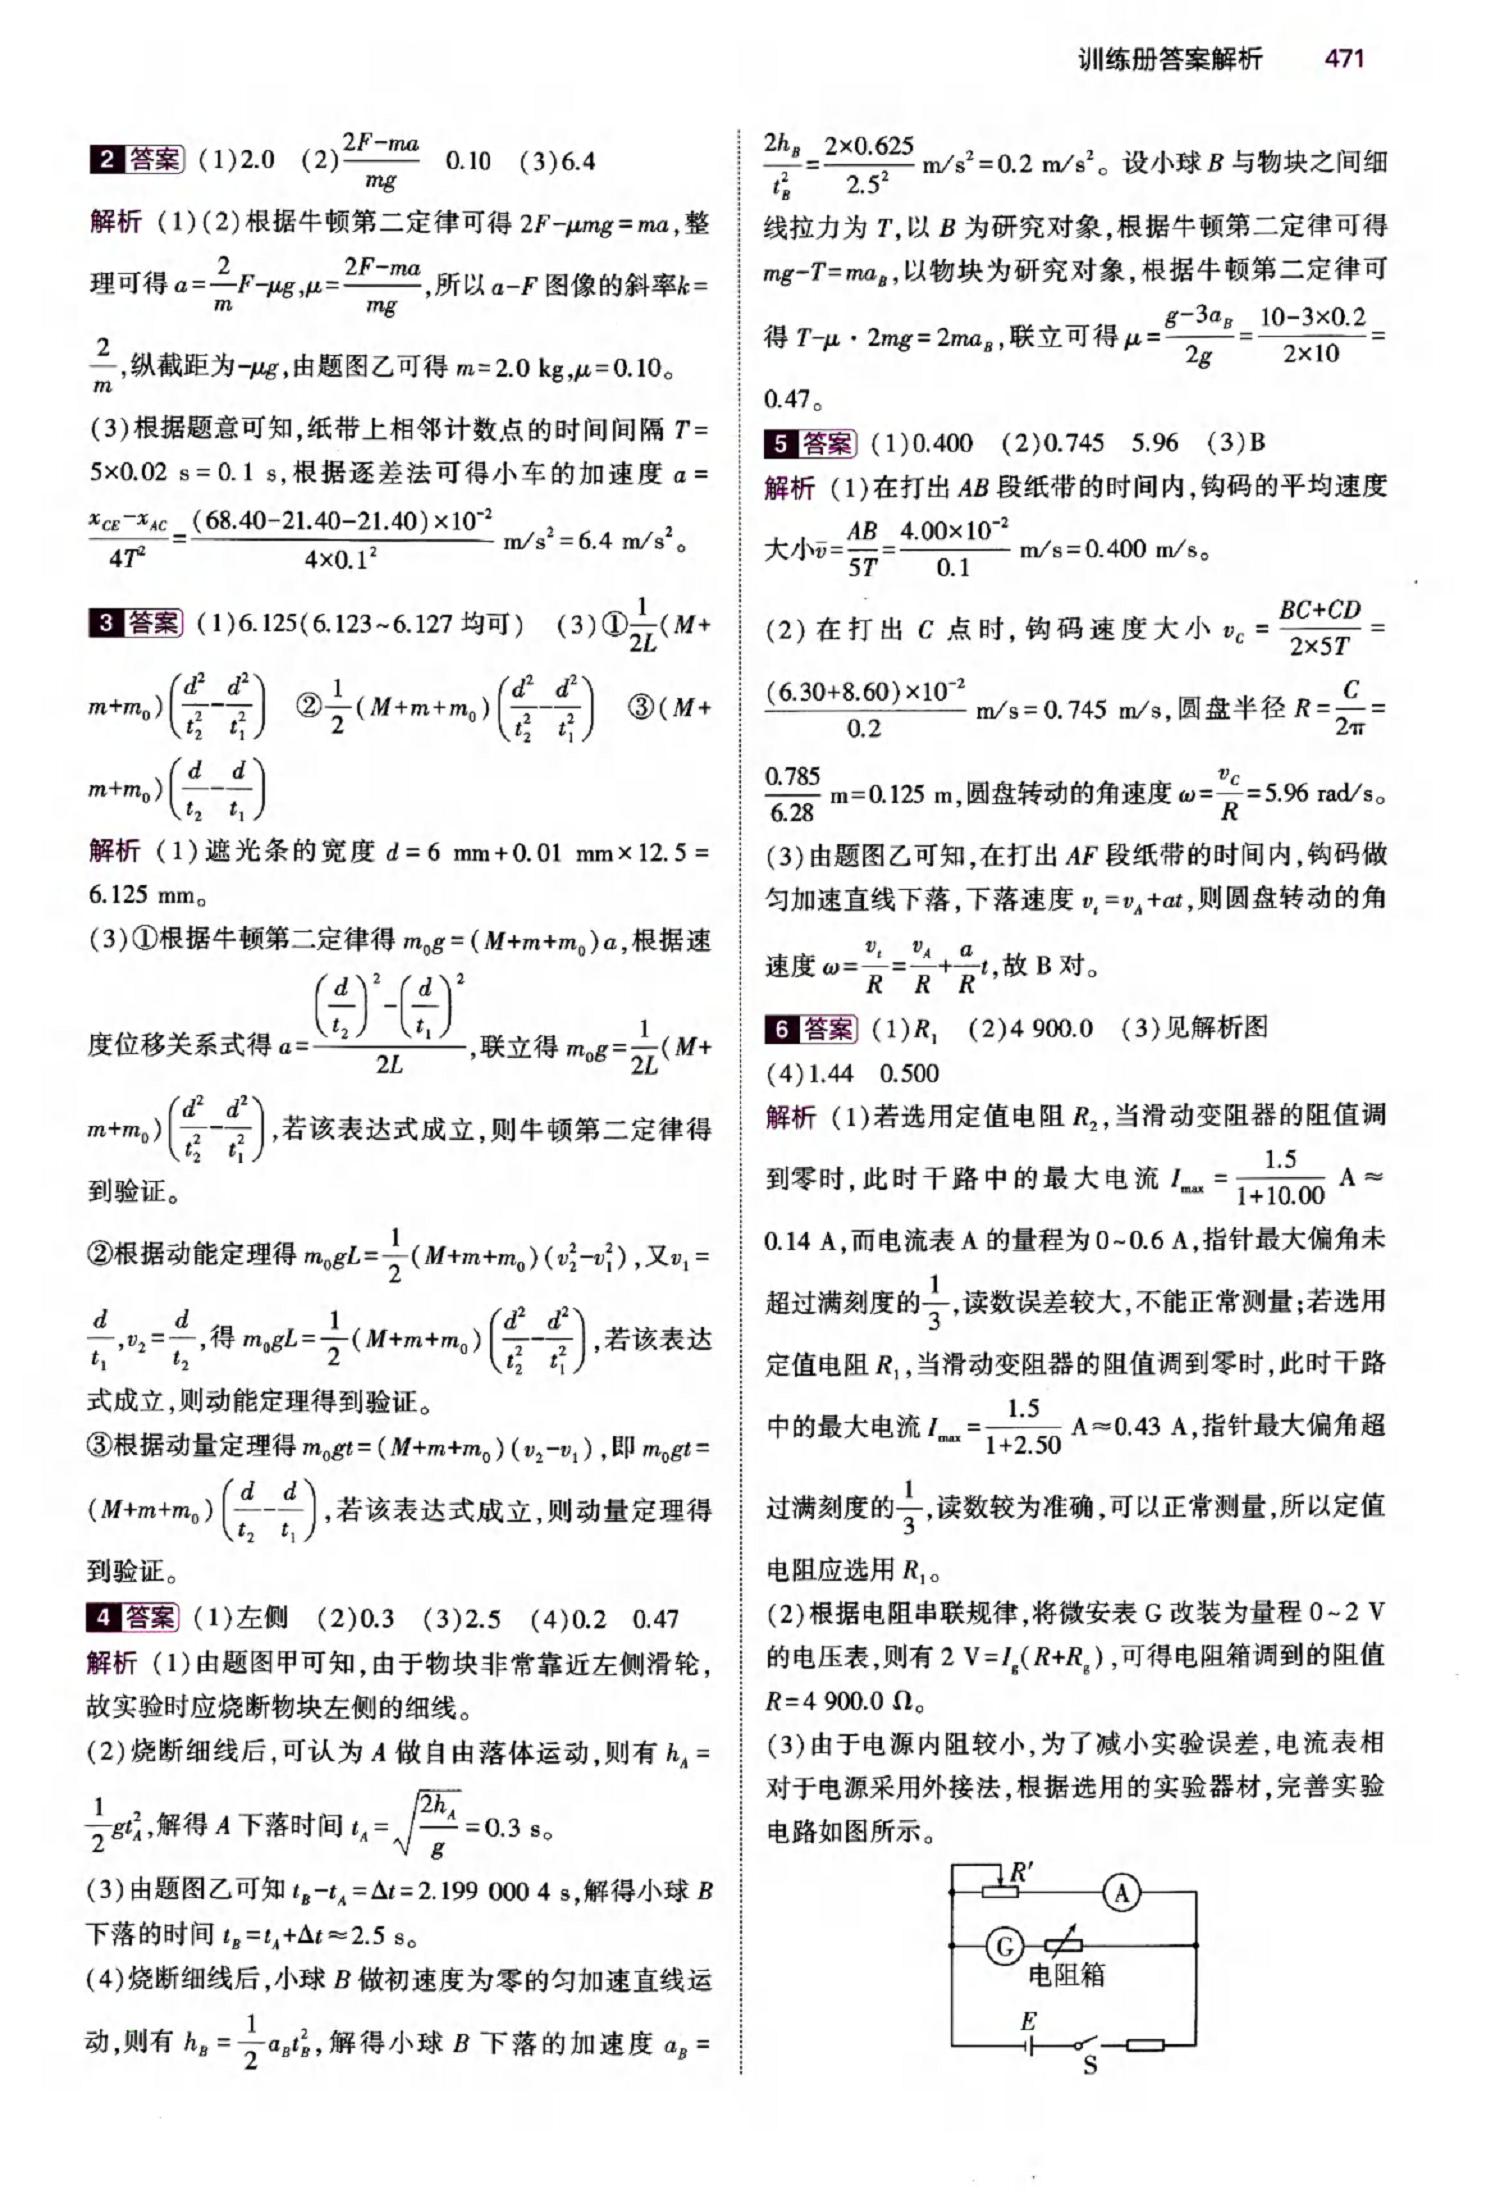 训练册答案解析 471
2 答案 (1)2.0 (2)\frac{2F-ma}{mg} 0.10 (3)6.4
解析 (1)(2)根据牛顿第二定律可得 2F-μmg=ma,整
理可得 a=\frac{2}{m}F-μg,μ=\frac{2F-ma}{mg},所以 a-F 图像的斜率k=
\frac{2}{m},纵截距为-μg,由题图乙可得 m=2.0 kg,μ=0.10。
(3)根据题意可知,纸带上相邻计数点的时间间隔 T=
5×0.02 s=0.1 s,根据逐差法可得小车的加速度 a=
\frac{x_{CE}-x_{AC}}{4T^2}=\frac{(68.40-21.40-21.40)×10^{-2}}{4×0.1^2} m/s^2=6.4 m/s^2。
3 答案 (1)6.125(6.123~6.127 均可) (3)①\frac{1}{2L}(M+
m+m_0)(\frac{d^2}{t_2^2}-\frac{d^2}{t_1^2}) ②\frac{1}{2}(M+m+m_0)(\frac{d^2}{t_2^2}-\frac{d^2}{t_1^2}) ③(M+
m+m_0)(\frac{d}{t_2}-\frac{d}{t_1})
解析 (1)遮光条的宽度 d=6 mm+0.01 mm×12.5=
6.125 mm。
(3)①根据牛顿第二定律得 m_0g=(M+m+m_0)a,根据速
度位移关系式得 a=\frac{(\frac{d}{t_2})^2-(\frac{d}{t_1})^2}{2L},联立得 m_0g=\frac{1}{2L}(M+
m+m_0)(\frac{d^2}{t_2^2}-\frac{d^2}{t_1^2}),若该表达式成立,则牛顿第二定律得
到验证。
②根据动能定理得 m_0gL=\frac{1}{2}(M+m+m_0)(v_2^2-v_1^2),又v_1=
\frac{d}{t_1},v_2=\frac{d}{t_2},得 m_0gL=\frac{1}{2}(M+m+m_0)(\frac{d^2}{t_2^2}-\frac{d^2}{t_1^2}),若该表达
式成立,则动能定理得到验证。
③根据动量定理得 m_0gt=(M+m+m_0)(v_2-v_1),即 m_0gt=
(M+m+m_0)(\frac{d}{t_2}-\frac{d}{t_1}),若该表达式成立,则动量定理得
到验证。
4 答案 (1)左侧 (2)0.3 (3)2.5 (4)0.2 0.47
解析 (1)由题图甲可知,由于物块非常靠近左侧滑轮,
故实验时应烧断物块左侧的细线。
(2)烧断细线后,可认为 A 做自由落体运动,则有 h_A=
\frac{1}{2}gt_A^2,解得 A 下落时间 t_A=\sqrt{\frac{2h_A}{g}}=0.3 s。
(3)由题图乙可知 t_B-t_A=Δt=2.199 000 4 s,解得小球 B
下落的时间 t_B=t_A+Δt≈2.5 s。
(4)烧断细线后,小球 B 做初速度为零的匀加速直线运
动,则有 h_B=\frac{1}{2}a_Bt_B^2,解得小球 B 下落的加速度 a_B=
\frac{2h_B}{t_B^2}=\frac{2×0.625}{2.5^2} m/s^2=0.2 m/s^2。设小球 B 与物块之间细
线拉力为 T,以 B 为研究对象,根据牛顿第二定律可得
mg-T=ma_B,以物块为研究对象,根据牛顿第二定律可
得 T-μ·2mg=2ma_B,联立可得 μ=\frac{g-3a_B}{2g}=\frac{10-3×0.2}{2×10}=
0.47。
5 答案 (1)0.400 (2)0.745 5.96 (3)B
解析 (1)在打出 AB 段纸带的时间内,钩码的平均速度
大小\bar{v}=\frac{AB}{5T}=\frac{4.00×10^{-2}}{0.1} m/s=0.400 m/s。
(2)在打出 C 点时,钩码速度大小 v_C=\frac{BC+CD}{2×5T}=
\frac{(6.30+8.60)×10^{-2}}{0.2} m/s=0.745 m/s,圆盘半径 R=\frac{C}{2π}=
\frac{0.785}{6.28} m=0.125 m,圆盘转动的角速度 ω=\frac{v_C}{R}=5.96 rad/s。
(3)由题图乙可知,在打出 AF 段纸带的时间内,钩码做
匀加速直线下落,下落速度 v_t=v_A+at,则圆盘转动的角
速度 ω=\frac{v_t}{R}=\frac{v_A}{R}+\frac{a}{R}t,故 B 对。
6 答案 (1)R_1 (2)4 900.0 (3)见解析图
(4)1.44 0.500
解析 (1)若选用定值电阻 R_2,当滑动变阻器的阻值调
到零时,此时干路中的最大电流 I_{max}=\frac{1.5}{1+10.00} A≈
0.14 A,而电流表 A 的量程为 0~0.6 A,指针最大偏角未
超过满刻度的\frac{1}{3},读数误差较大,不能正常测量;若选用
定值电阻 R_1,当滑动变阻器的阻值调到零时,此时干路
中的最大电流 I_{max}=\frac{1.5}{1+2.50} A≈0.43 A,指针最大偏角超
过满刻度的\frac{1}{3},读数较为准确,可以正常测量,所以定值
电阻应选用 R_1。
(2)根据电阻串联规律,将微安表 G 改装为量程 0~2 V
的电压表,则有 2 V=I_g(R+R_g),可得电阻箱调到的阻值
R=4 900.0 Ω。
(3)由于电源内阻较小,为了减小实验误差,电流表相
对于电源采用外接法,根据选用的实验器材,完善实验
电路如图所示。
R′
A
G
电阻箱
E
S